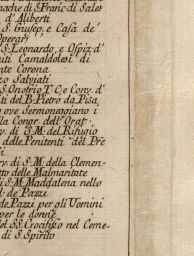 nache di S. Franc. di Sales
d'Aliberti
S. Giusep. e Casa de'
Operarj
S. Leonardo, e Ospiz. d'
niti Camaldolesi di
nte Corona
zo Salviati
S. Onofrio T. C. e Conv. d'
iti del B. Pietro da Pisa,
o ove Sermoneggiano i
la Congr. dell' Orat.
v. di S. M. del Rifugio
delle Penitenti del Pre
si
v. di S. M. della Clemen-
tto delle Malmaritate
di S. M. Maddalena nello
d. de Pazzi
de Pazzi per gli Uomini
per le donne
del SS. Crocifisso nel Ceme-
di S. Spirito